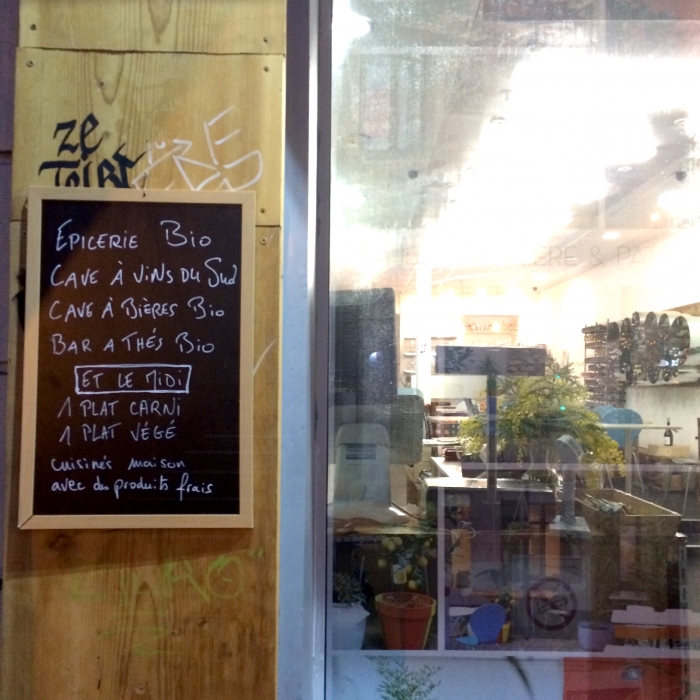 ZE
EPICERIE Bio
CAVE À ViNS DU Sud
CAVE À BIÈRES Bio
BAR A THÉS Bio
ET LE MIDI
1 PLAT CARNI
1 PLAT VÉGÉ
cuisinés maison
avec des produits frais